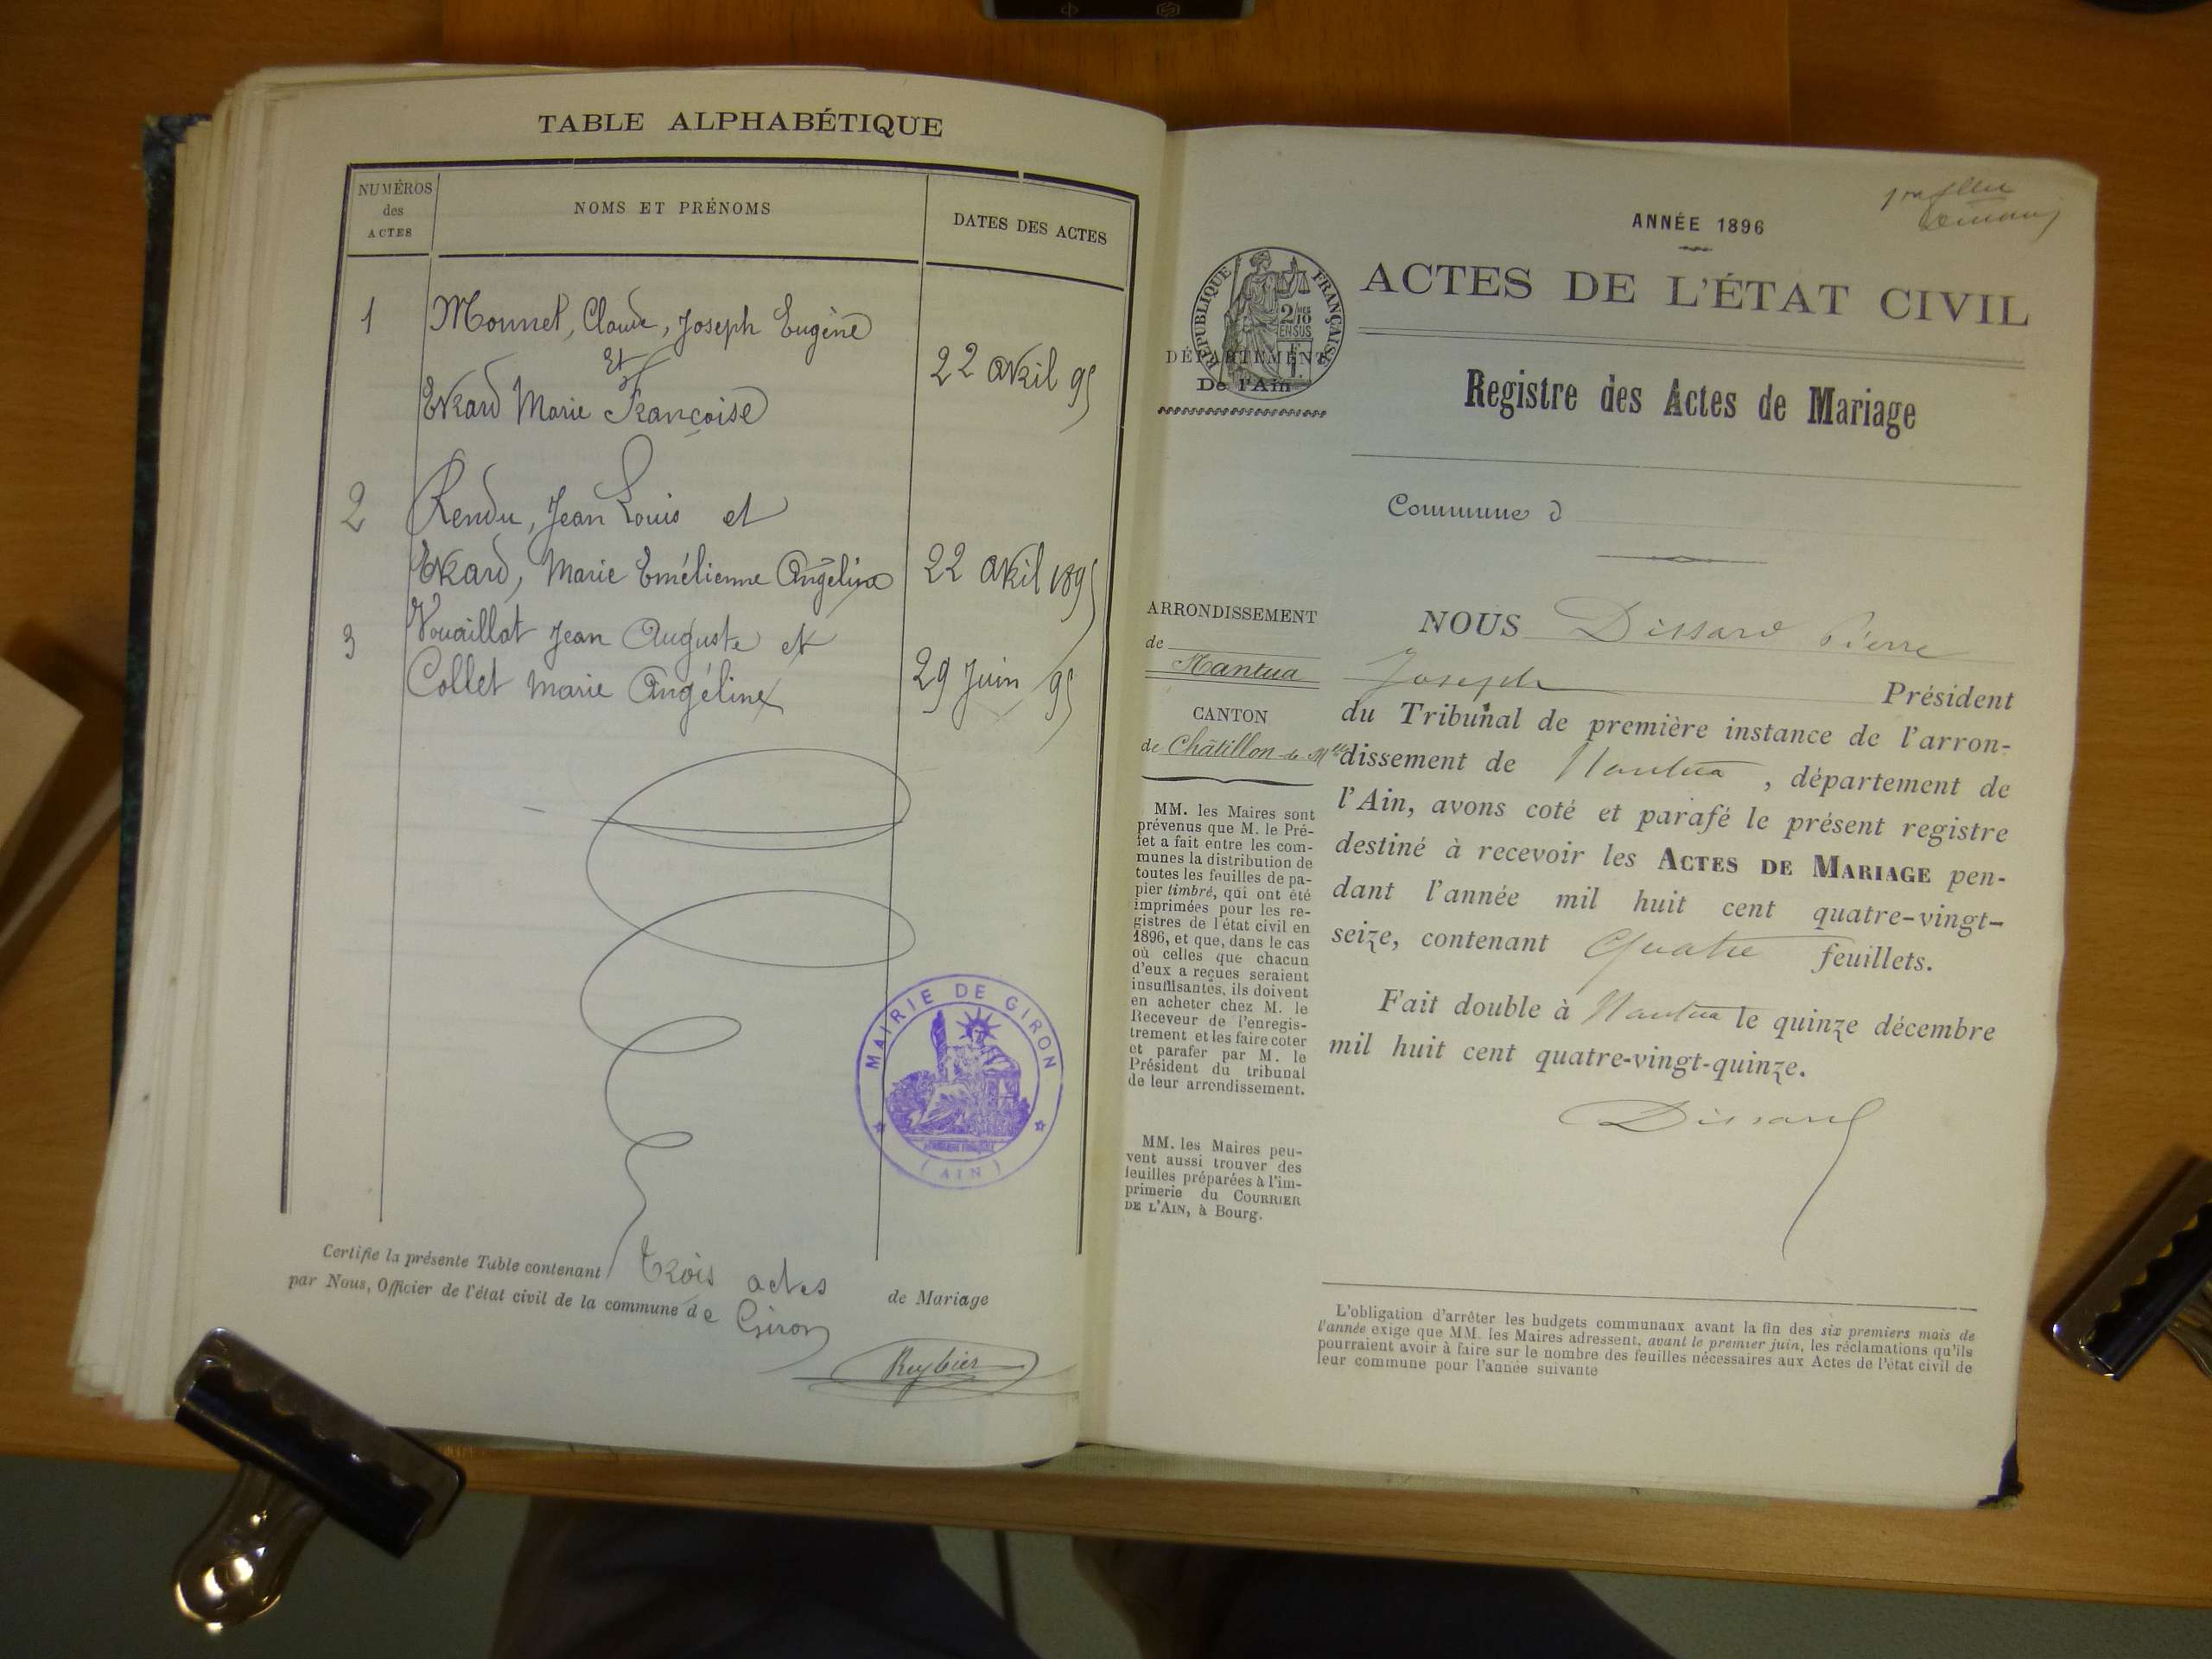 TABLE ALPHABÉTIQUE
NUMÉROS
des
ACTES
NOMS ET PRÉNOMS
DATES DES ACTES
1
Monnet, Claude, Joseph Eugène
Et
Evrard Marie Françoise
22 avril 95
2
Rendu, Jean Louis et
Evrard, Marie Emélienne Angéline
22 avril 1895
3
Vouaillat Jean Auguste et
Collet Marie Angéline
29 Juin 95
MAIRIE DE GIRON
(AIN)
Certifie la présente Table contenant trois actes de Mariage
par Nous, Officier de l'état civil de la commune de Giron
Reybier
ANNÉE 1896
RÉPUBLIQUE FRANÇAISE
ACTES DE L'ÉTAT CIVIL
DÉPARTEMENT
De l'Ain
Registre des Actes de Mariage
Commune d
ARRONDISSEMENT
de
Nantua
CANTON
de Châtillon-de-Mlle
MM. les Maires sont
prévenus que M. le Pré-
fet a fait entre les com-
munes la distribution de
toutes les feuilles de pa-
pier timbré, qui ont été
imprimées pour les re-
gistres de l'état civil en
1896, et que, dans le cas
où celles que chacun
d'eux a reçues seraient
insuffisantes, ils doivent
en acheter chez M. le
Receveur de l'enregis-
trement et les faire coter
et parafer par M. le
Président du tribunal
de leur arrondissement.
MM. les Maires peu-
vent aussi trouver des
feuilles préparées à l'im-
primerie du COURRIER
DE L'AIN, à Bourg.
NOUS Dissard Pierre
Joseph Président
du Tribunal de première instance de l'arron-
dissement de Nantua, département de
l'Ain, avons coté et parafé le présent registre
destiné à recevoir les ACTES DE MARIAGE pen-
dant l'année mil huit cent quatre-vingt-
seize, contenant quatre feuillets.
Fait double à Nantua le quinze décembre
mil huit cent quatre-vingt-quinze.
Dissard
L'obligation d'arrêter les budgets communaux avant la fin des six premiers mois de
l'année exige que MM. les Maires adressent, avant le premier juin, les réclamations qu'ils
pourraient avoir à faire sur le nombre des feuilles nécessaires aux Actes de l'état civil de
leur commune pour l'année suivante